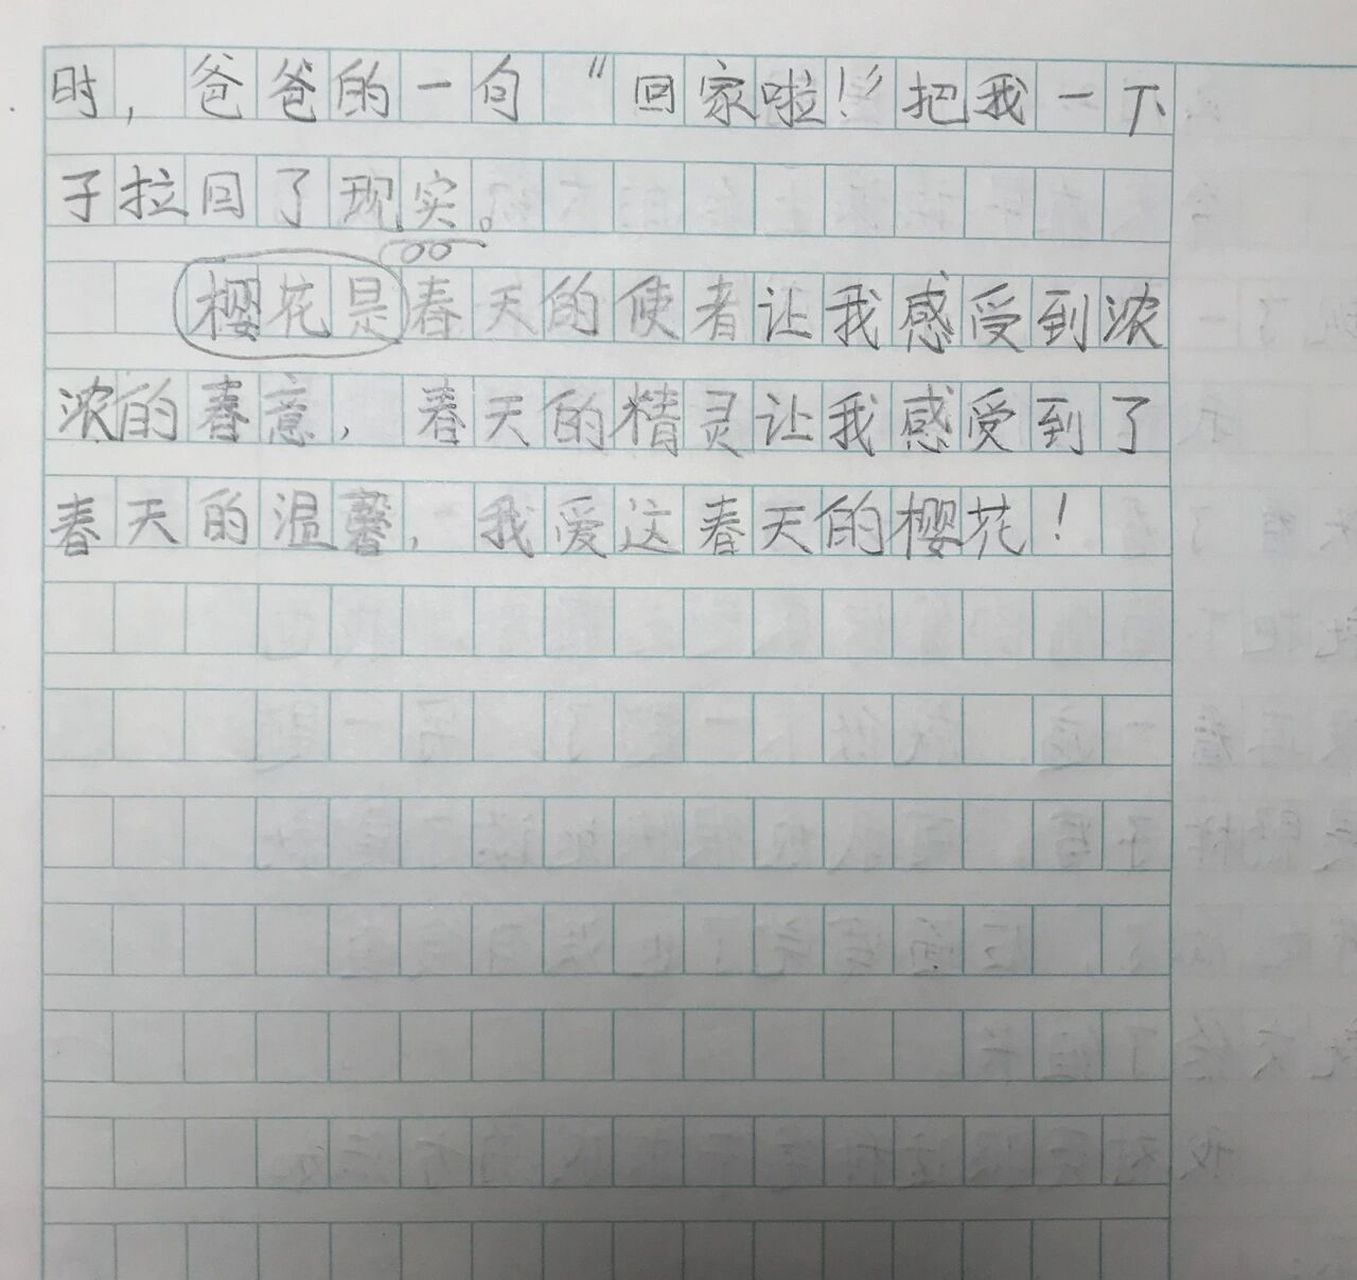 时，爸爸的一句“回家啦！”把我一下
子拉回了现实。
樱花是春天的使者让我感受到浓
浓的春意，春天的精灵让我感受到了
春天的温馨，我爱这春天的樱花！